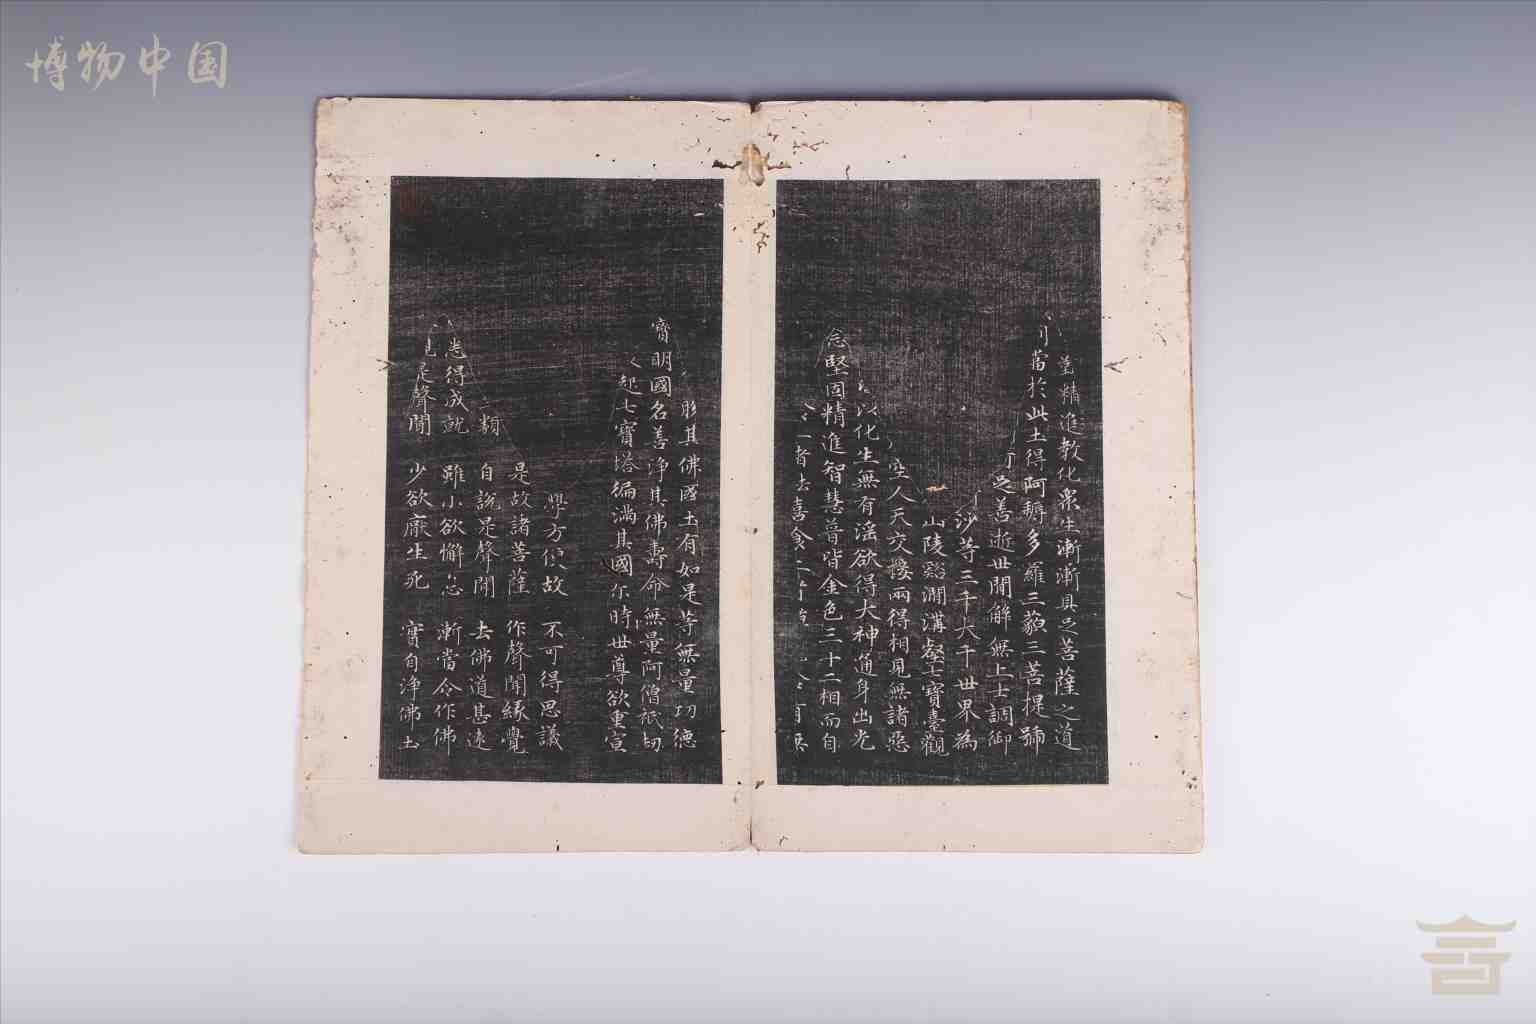 博物中国
精進教化衆生漸漸具之菩薩之道
當於此土得阿耨多羅三藐三菩提號
之善逝世間解無上士調御
沙等三千大千世界為
山陵谿澗溝壑七寶臺觀
人天交接兩得相見無諸惡
以化生無有淫欲得大神通身出光
念堅固精進智慧普皆金色三十二相而自
一者法喜食二
形其佛國土有如是等無量功德
寶明國名善淨其佛壽命無量阿僧祇劫
起七寶塔徧滿其國尔時世尊欲重宣
學方便故 不可得思議
是故諸菩薩 作聲聞緣覺
類 自說是聲聞 去佛道甚遠
悉得成就 雖小欲懈怠 漸當令作佛
是聲聞 少欲厭生死 實自淨佛土